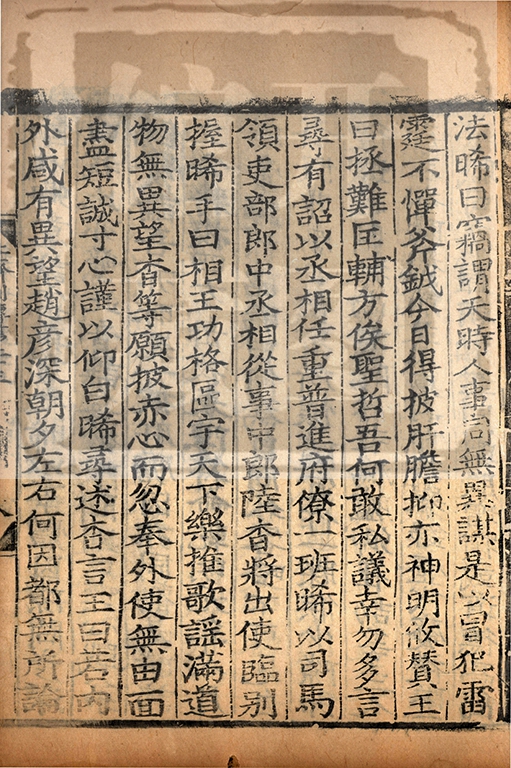 法晞曰竊謂天時人事同無異謀是以冒犯雷
霆不憚斧鉞今日得披肝膽抑亦神明攸贊王
曰拯難匡輔方俟聖哲吾何敢私議幸勿多言
尋有詔以丞相任重普進府僚一班晞以司馬
領吏部郎中丞相從事中郎陸杳將出使臨別
握晞手曰相王功格區宇天下樂推歌謡滿道
物無異望杳等願披赤心而忽奉外使無由面
盡短誠寸心謹以仰白晞尋述杳言王曰若内
外咸有異望趙彦深朝夕左右何因都無所論